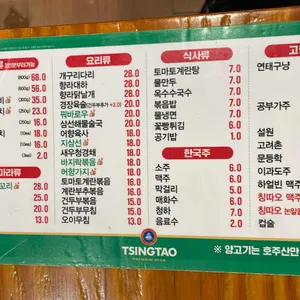 요리류
개구리다리 28.0
향라대하 28.0
향라닭날개 28.0
경장육슬(건두부추가+3.0) 20.0
꿔바로우 20.0
삼선해물술국 20.0
어향육사 20.0
지삼선 20.0
새우청경채 20.0
바지락볶음 20.0
어향가지 20.0
토마토계란볶음 15.0
계란부추볶음 15.0
건두부볶음 15.0
건두부무침 15.0
오이무침 13.0
식사류
토마토계란탕 7.0
물만두 7.0
옥수수국수 7.0
볶음밥 7.0
물냉면 7.0
꽃빵튀김 6.0
공기밥 1.0
한국주
소주 6.0
맥주 6.0
막걸리 5.0
매화수 6.0
청하 7.0
음료수 2.0
연태구냥
공부가주
설원
고려촌
문등학
이과도주
하얼빈 맥주
칭따오 맥주
칭따오
컵술
(800g) 68.0
(600g) 56.0
35.0
23.0
16.0
(3ea) 2.0
28.0
25.0
20.0
13.0
TSINGTAO
※ 양고기는 호주산만